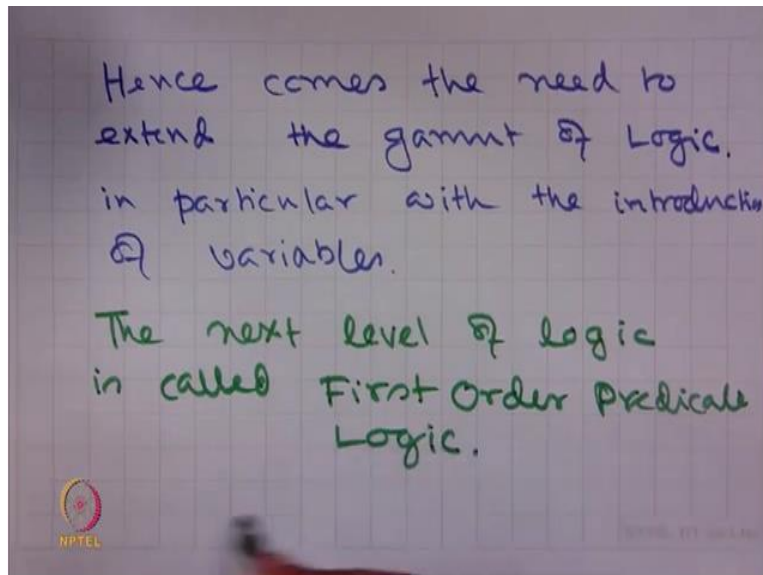 Hence comes the need to
extend the gamut of Logic.
in particular with the introduction
of variables.
The next level of logic
is called First Order Predicate
Logic.
NPTEL